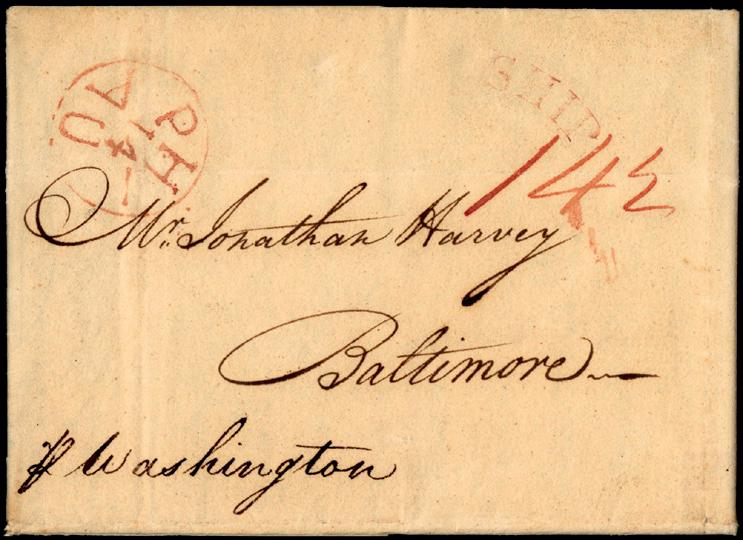 PH
14
AU
SHIP
14½
Mr. Jonathan Harvey
Baltimore
p Washington